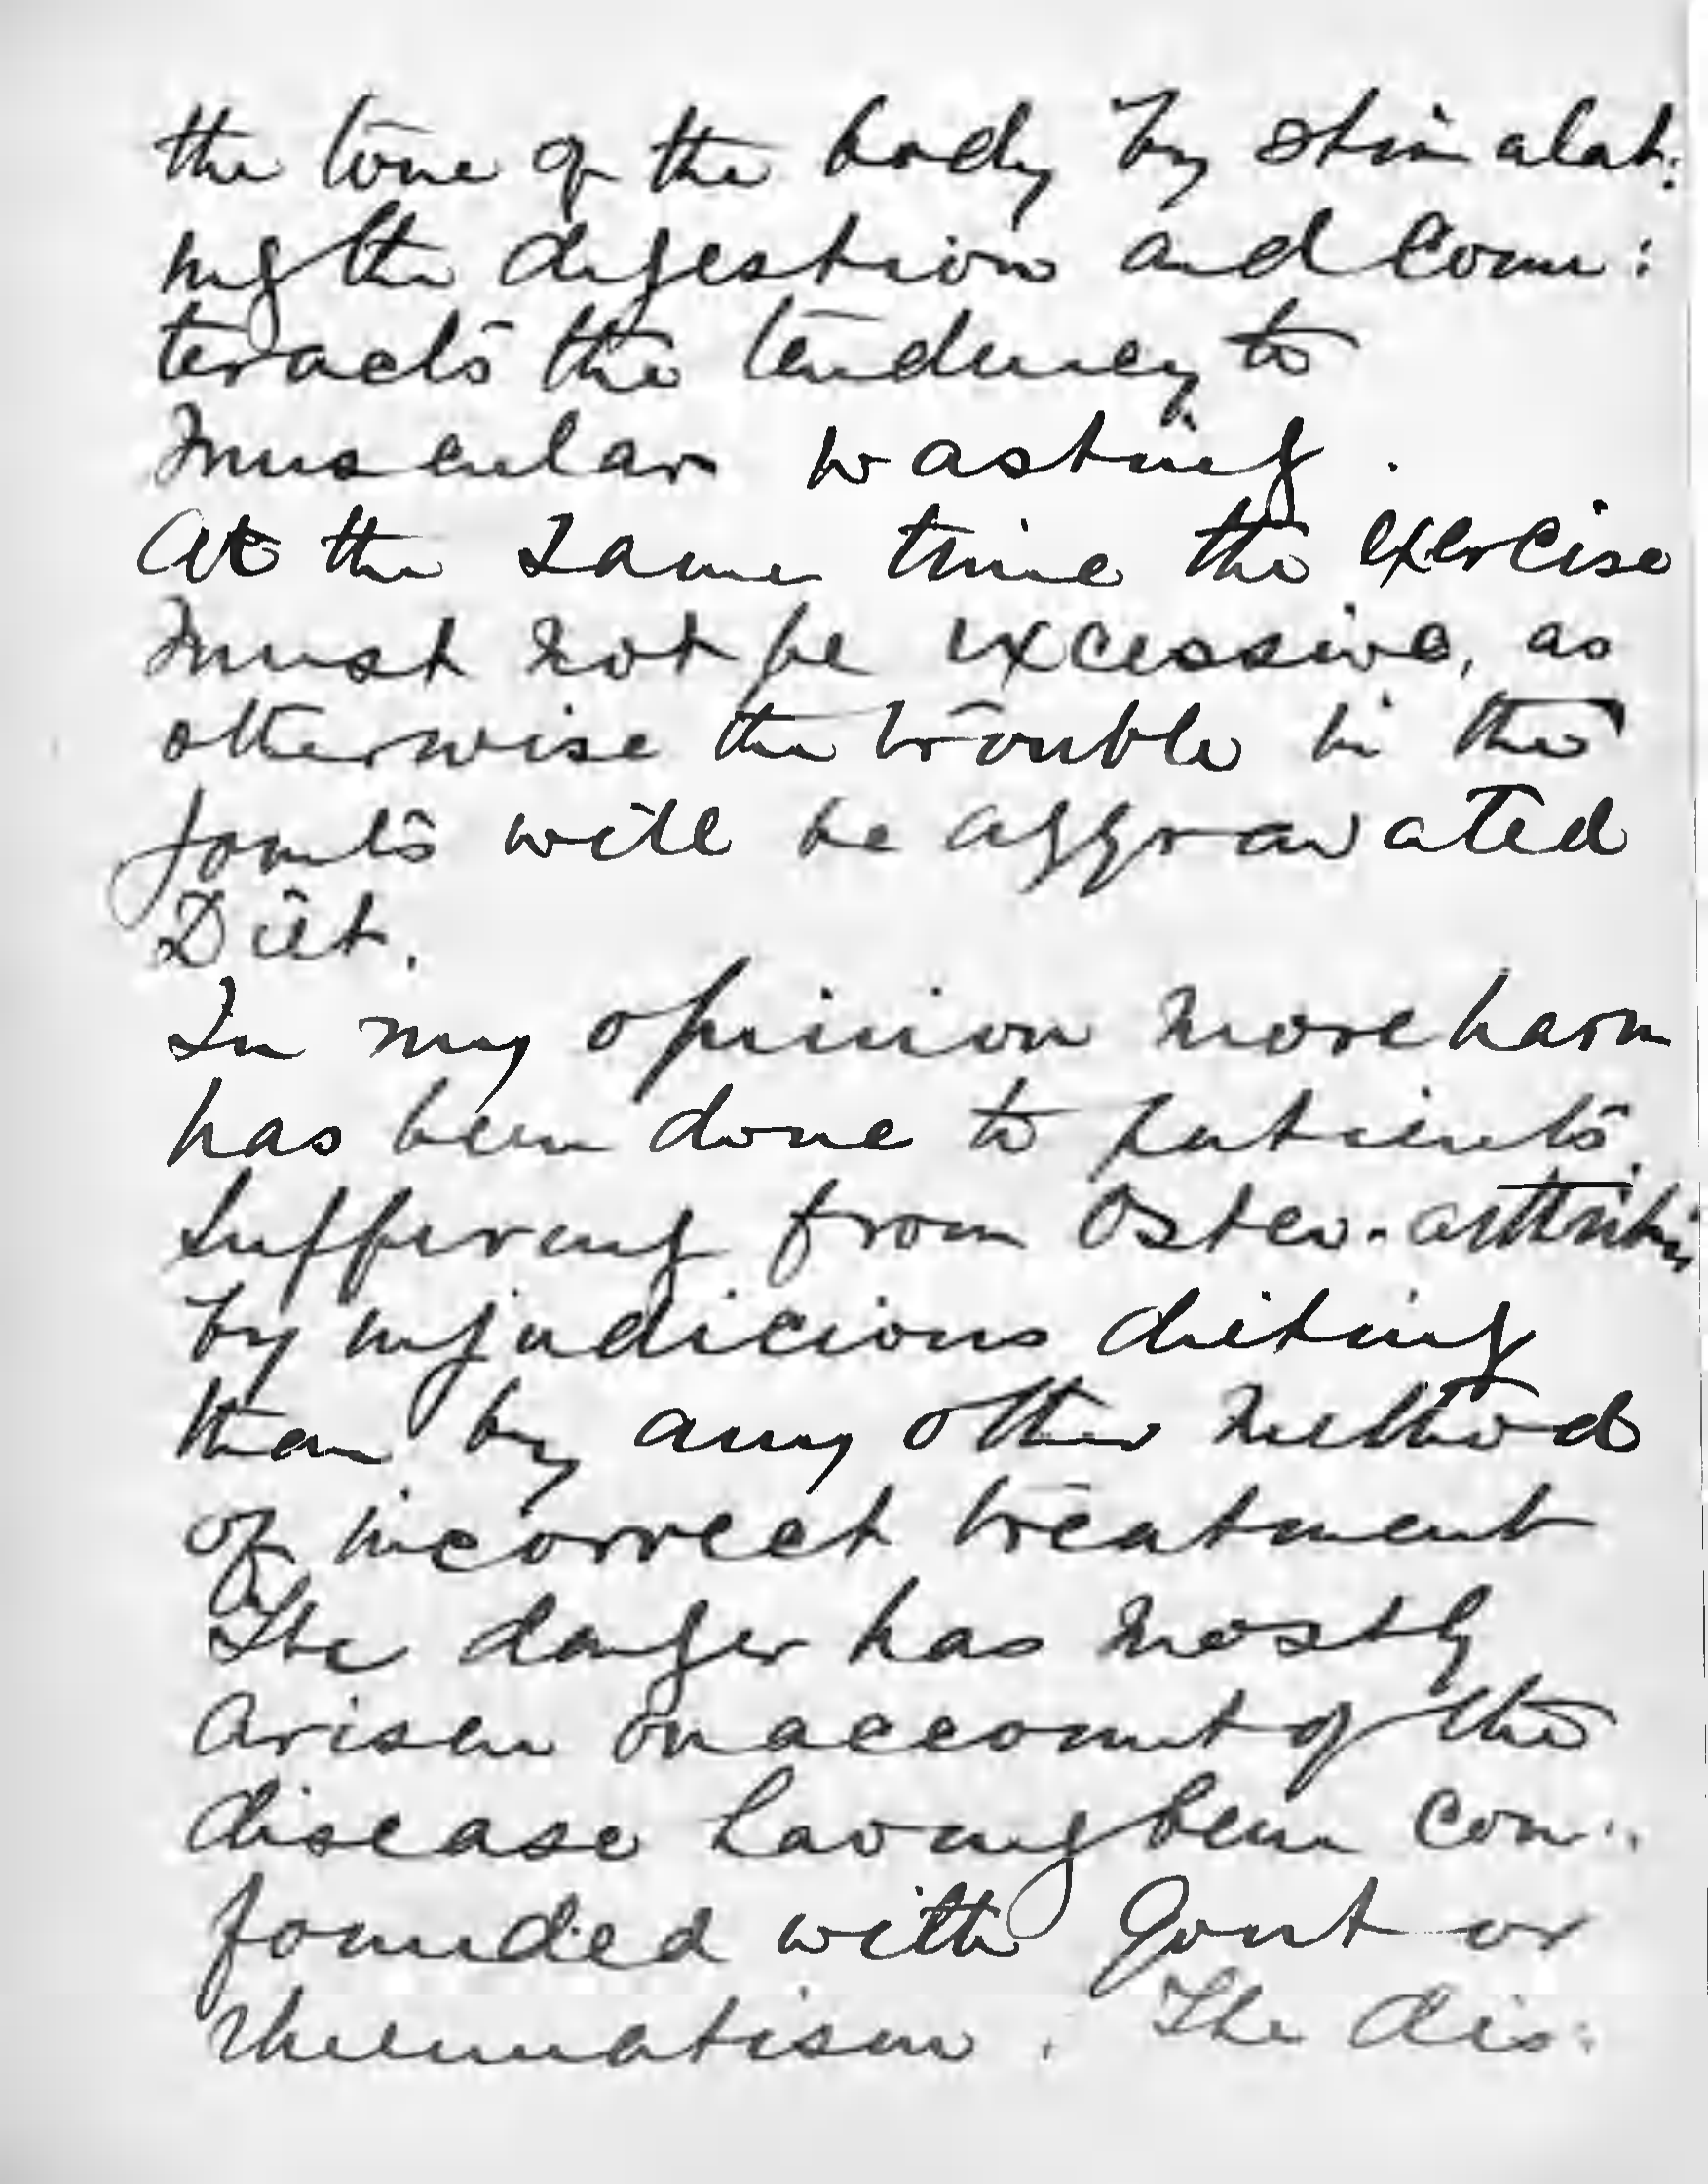 the tone of the body by stimulat:
ing the digestion and coun:
teracts the tendency to
muscular wasting.
At the same time the exercise
must not be excessive, as
otherwise the trouble in the
joints will be aggravated
Diet.
In my opinion more harm
has been done to patients
suffering from Osteo-arthritis
by injudicious dieting
than by any other method
of incorrect treatment
The danger has mostly
arisen on account of the
disease having been con:
founded with Gout or
rheumatism. The dis: